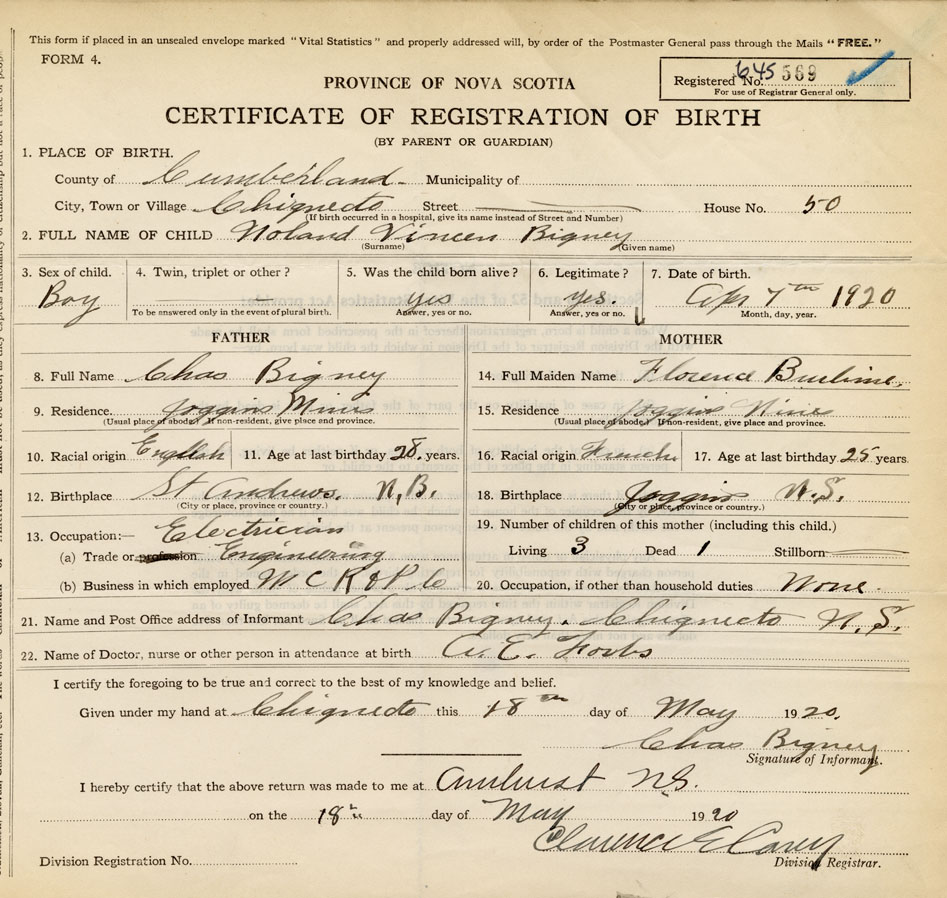 This form if placed in an unsealed envelope marked "Vital Statistics" and properly addressed will, by order of the Postmaster General pass through the Mails "FREE."
FORM 4.
PROVINCE OF NOVA SCOTIA
Registered No. 645 569
For use of Registrar General only.
CERTIFICATE OF REGISTRATION OF BIRTH
(BY PARENT OR GUARDIAN)
1. PLACE OF BIRTH.
County of Cumberland Municipality of
City, Town or Village Chignecto Street House No. 50
(If birth occurred in a hospital, give its name instead of Street and Number)
2. FULL NAME OF CHILD Noland Vincen Bigney
(Surname) (Given name)
3. Sex of child. 4. Twin, triplet or other? 5. Was the child born alive? 6. Legitimate? 7. Date of birth.
Boy yes yes. Apr 7th 1920
To be answered only in the event of plural birth. Answer, yes or no. Answer, yes or no. Month, day, year.
FATHER MOTHER
8. Full Name Chas Bigney 14. Full Maiden Name Florence
9. Residence. Joggins Mines 15. Residence Joggins Mines
(Usual place of abode.) If non-resident, give place and province. (Usual place of abode.) If non-resident, give place and province.
10. Racial origin English 11. Age at last birthday 28. years. 16. Racial origin French 17. Age at last birthday 25 years.
12. Birthplace St Andrews, N.B. 18. Birthplace Joggins N.S.
(City or place, province or country.) (City or place, province or country.)
13. Occupation:— Electrician 19. Number of children of this mother (including this child.)
(a) Trade or profession Engineering Living 3 Dead 1 Stillborn
(b) Business in which employed M C R & P Co 20. Occupation, if other than household duties None.
21. Name and Post Office address of Informant Chas Bigney. Chignecto N.S.
22. Name of Doctor, nurse or other person in attendance at birth A. E. Forbs
I certify the foregoing to be true and correct to the best of my knowledge and belief.
Given under my hand at Chignecto this 18th day of May 1920.
Chas Bigney
Signature of Informant.
I hereby certify that the above return was made to me at Amherst N.S.
on the 18th day of May 1920
Clarence E Casey
Division Registrar No. Division Registrar.